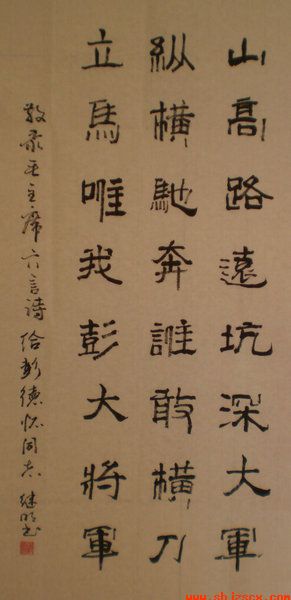 山高路遠坑深大軍
縱橫馳奔誰敢橫刀
立馬唯我彭大將軍
敬录毛主席六言诗给彭德怀同志 继明书
www.shjzscx.com